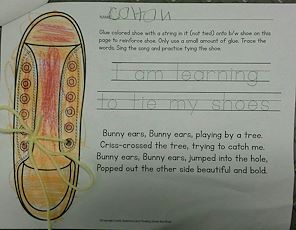 NAME
Glue colored shoe with a string in it (not tied) onto b/w shoe on this
page to reinforce shoe. Only use a small amount of glue. Trace the
words. Sing the song and practice tying the shoe.
I am learning
to tie my shoes
Bunny ears, Bunny ears, playing by a tree.
Criss-crossed the tree, trying to catch me.
Bunny ears, Bunny ears, jumped into the hole,
Popped out the other side beautiful and bold.